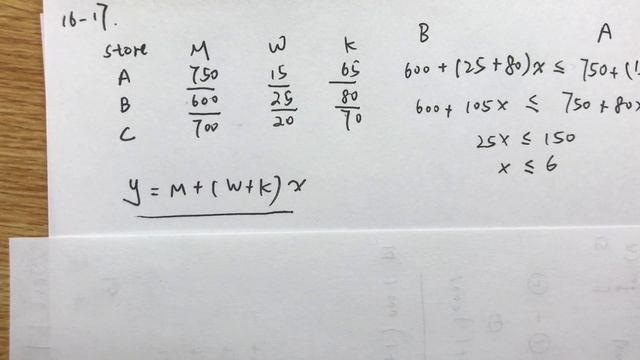 16-17.
store M W K
A 750 15 65
B 600 25 80
C 700 20 70
y = M + (W+K) x
B A
600 + (25+80)x ≤ 750 + (1
600 + 105x ≤ 750 + 80x
25x ≤ 150
x ≤ 6